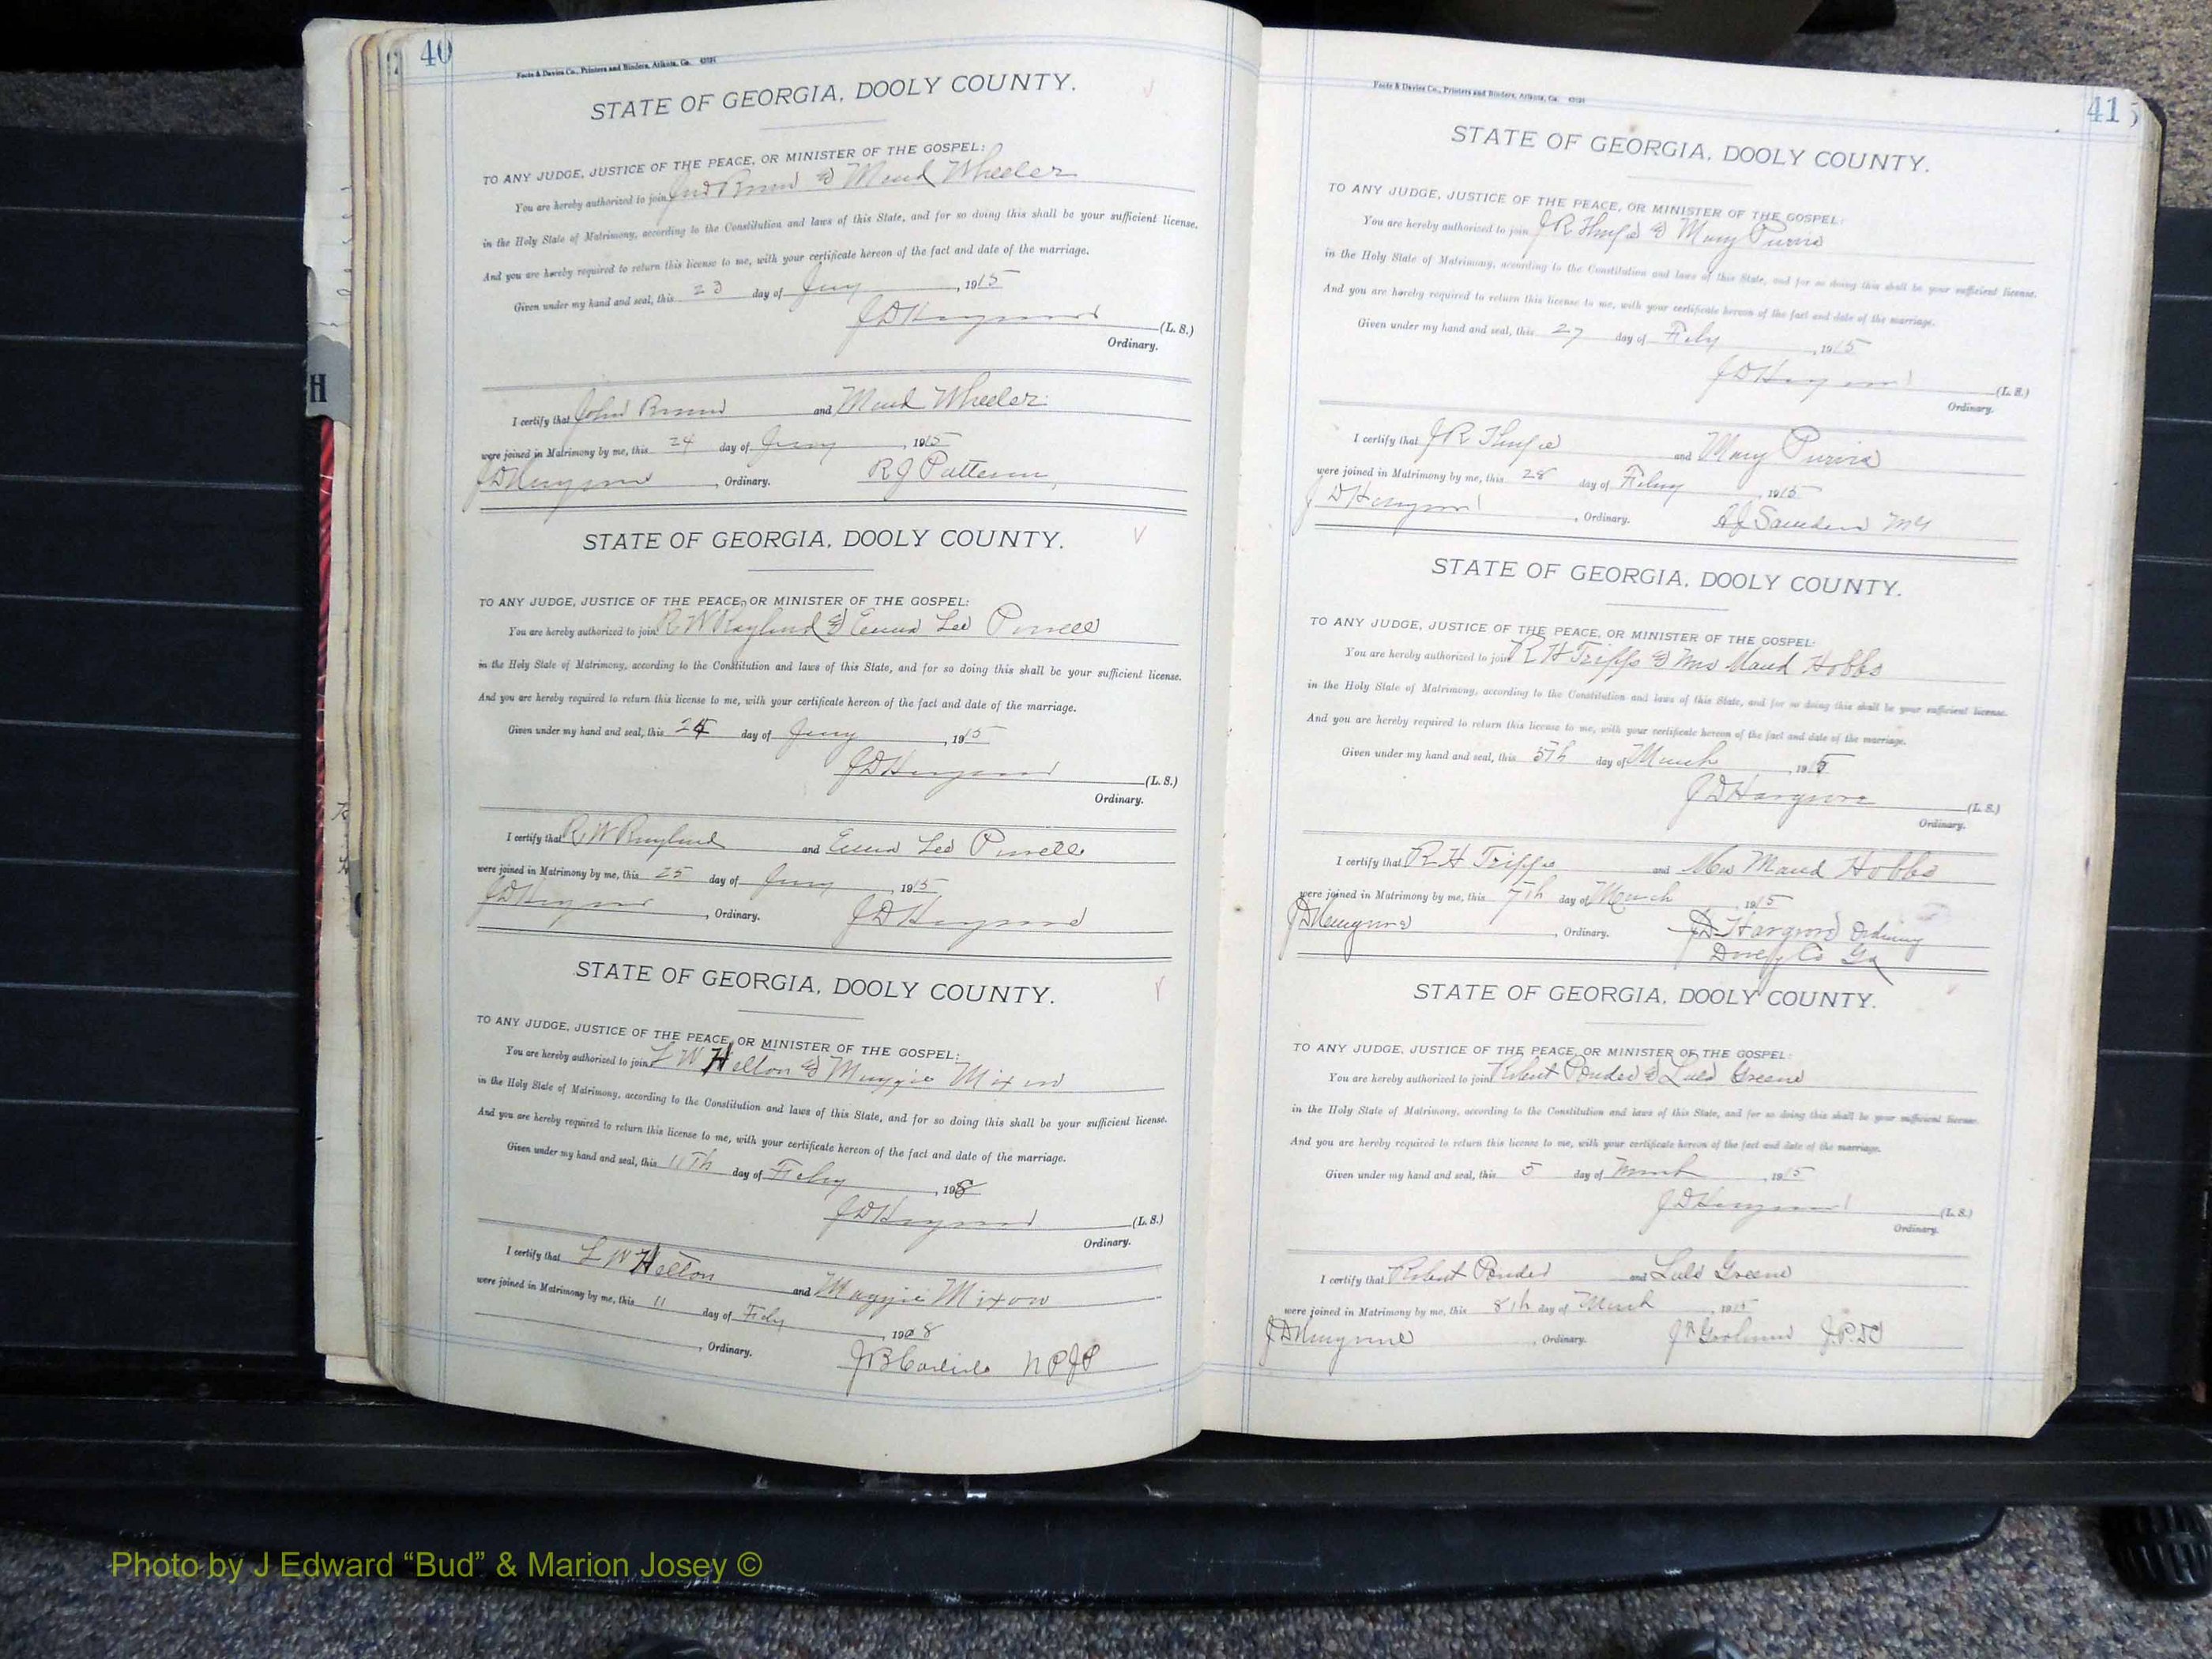 40
Foote & Davies Co., Printers and Binders, Atlanta, Ga.
STATE OF GEORGIA, DOOLY COUNTY.
TO ANY JUDGE, JUSTICE OF THE PEACE, OR MINISTER OF THE GOSPEL:
You are hereby authorized to join Jno Brown & Maud Wheeler
in the Holy State of Matrimony, according to the Constitution and laws of this State, and for so doing this shall be your sufficient license.
And you are hereby required to return this license to me, with your certificate hereon of the fact and date of the marriage.
Given under my hand and seal, this 23 day of Jany, 1915
J D Hargrove (L. S.)
Ordinary.
I certify that John Brown and Maud Wheeler
were joined in Matrimony by me, this 24 day of Jany, 1915
J D Hargrove, Ordinary. R J Patterson
STATE OF GEORGIA, DOOLY COUNTY.
TO ANY JUDGE, JUSTICE OF THE PEACE, OR MINISTER OF THE GOSPEL:
You are hereby authorized to join R W Raglund & Emma Lee Powell
in the Holy State of Matrimony, according to the Constitution and laws of this State, and for so doing this shall be your sufficient license.
And you are hereby required to return this license to me, with your certificate hereon of the fact and date of the marriage.
Given under my hand and seal, this day of Jany, 1915
J D Hargrove (L. S.)
Ordinary.
I certify that R W Raglund and Emma Lee Powell
were joined in Matrimony by me, this 25 day of Jany, 1915
J D Hargrove, Ordinary. J D Hargrove
STATE OF GEORGIA, DOOLY COUNTY.
TO ANY JUDGE, JUSTICE OF THE PEACE, OR MINISTER OF THE GOSPEL:
You are hereby authorized to join L W Helton & Maggie Mixon
in the Holy State of Matrimony, according to the Constitution and laws of this State, and for so doing this shall be your sufficient license.
And you are hereby required to return this license to me, with your certificate hereon of the fact and date of the marriage.
Given under my hand and seal, this 11th day of Feby, 198
J D Hargrove (L. S.)
Ordinary.
I certify that L W Helton and Maggie Mixon
were joined in Matrimony by me, this 11 day of Feby, 1908
, Ordinary. J B Carlisle N P J P
41
Foote & Davies Co., Printers and Binders, Atlanta, Ga.
STATE OF GEORGIA, DOOLY COUNTY.
TO ANY JUDGE, JUSTICE OF THE PEACE, OR MINISTER OF THE GOSPEL:
You are hereby authorized to join J R Tharpe & Mary Purvis
in the Holy State of Matrimony, according to the Constitution and laws of this State, and for so doing this shall be your sufficient license.
And you are hereby required to return this license to me, with your certificate hereon of the fact and date of the marriage.
Given under my hand and seal, this 27 day of Feby, 1915
J D Hargrove (L. S.)
Ordinary.
I certify that J R Tharpe and Mary Purvis
were joined in Matrimony by me, this 28 day of Febry, 1915
J D Hargrove, Ordinary. Saunders M G
STATE OF GEORGIA, DOOLY COUNTY.
TO ANY JUDGE, JUSTICE OF THE PEACE, OR MINISTER OF THE GOSPEL:
You are hereby authorized to join R H Tripp & Mrs Maud Hobbs
in the Holy State of Matrimony, according to the Constitution and laws of this State, and for so doing this shall be your sufficient license.
And you are hereby required to return this license to me, with your certificate hereon of the fact and date of the marriage.
Given under my hand and seal, this 5th day of March, 1915
J D Hargrove (L. S.)
Ordinary.
I certify that R H Tripp and Mrs Maud Hobbs
were joined in Matrimony by me, this 7th day of March, 1915
J D Hargrove, Ordinary. J D Hargrove Ordinary
Dooly Co Ga
STATE OF GEORGIA, DOOLY COUNTY.
TO ANY JUDGE, JUSTICE OF THE PEACE, OR MINISTER OF THE GOSPEL:
You are hereby authorized to join Robert Ponder & Lula Greene
in the Holy State of Matrimony, according to the Constitution and laws of this State, and for so doing this shall be your sufficient license.
And you are hereby required to return this license to me, with your certificate hereon of the fact and date of the marriage.
Given under my hand and seal, this 5 day of March, 1915
J D Hargrove (L. S.)
Ordinary.
I certify that Robert Ponder and Lula Greene
were joined in Matrimony by me, this 8th day of March, 1915
J D Hargrove, Ordinary. J. P.
H
Photo by J Edward “Bud” & Marion Josey ©